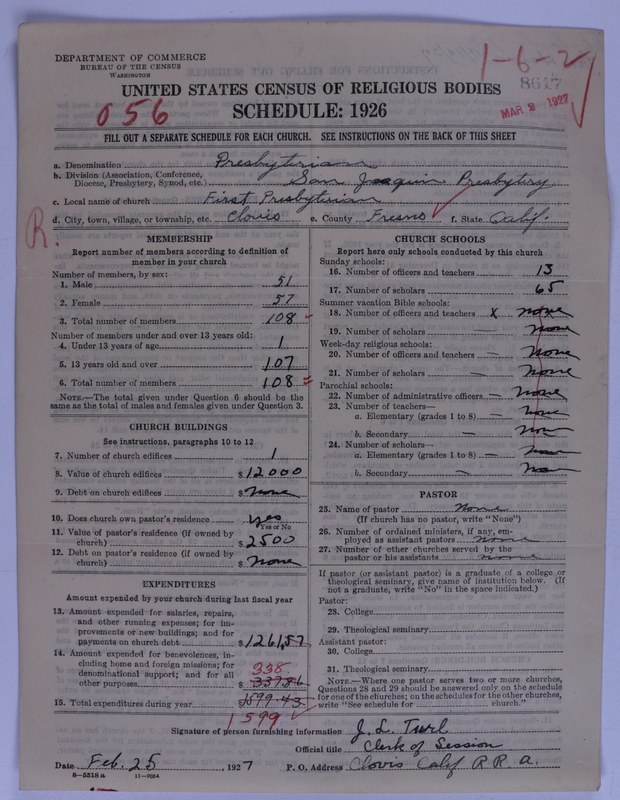 DEPARTMENT OF COMMERCE
BUREAU OF THE CENSUS
WASHINGTON
1-6-2
8617
MAR 2 1927
UNITED STATES CENSUS OF RELIGIOUS BODIES
056
SCHEDULE: 1926
FILL OUT A SEPARATE SCHEDULE FOR EACH CHURCH. SEE INSTRUCTIONS ON THE BACK OF THIS SHEET
a. Denomination Presbyterian
b. Division (Association, Conference, Diocese, Presbytery, Synod, etc.) San Joaquin Presbytry
c. Local name of church First Presbyterian
d. City, town, village, or township, etc. Clovis e. County Fresno f. State Calif.
R.
MEMBERSHIP
Report number of members according to definition of
member in your church
Number of members, by sex:
1. Male 51
2. Female 57
3. Total number of members 108
Number of members under and over 13 years old:
4. Under 13 years of age 1
5. 13 years old and over 107
6. Total number of members 108
NOTE.—The total given under Question 6 should be the
same as the total of males and females given under Question 3.
CHURCH BUILDINGS
See instructions, paragraphs 10 to 12
7. Number of church edifices 1
8. Value of church edifices $ 12000
9. Debt on church edifices $ none
10. Does church own pastor's residence yes
Yes or No
11. Value of pastor's residence (if owned by
church) $ 2500
12. Debt on pastor's residence (if owned by
church) $ none
EXPENDITURES
Amount expended by your church during last fiscal year
13. Amount expended for salaries, repairs,
and other running expenses; for im-
provements or new buildings; and for
payments on church debt $ 1261.57
14. Amount expended for benevolences, in-
cluding home and foreign missions; for
denominational support; and for all
other purposes $ 337.86
338
15. Total expenditures during year $ 1599.43
1599
CHURCH SCHOOLS
Report here only schools conducted by this church
Sunday schools:
16. Number of officers and teachers 13
17. Number of scholars 65
Summer vacation Bible schools:
18. Number of officers and teachers x none
19. Number of scholars — none
Week-day religious schools:
20. Number of officers and teachers — none
21. Number of scholars — none
Parochial schools:
22. Number of administrative officers — none
23. Number of teachers—
a. Elementary (grades 1 to 8) — none
b. Secondary — non
24. Number of scholars—
a. Elementary (grades 1 to 8) — none
b. Secondary — none
PASTOR
25. Name of pastor None
(If church has no pastor, write "None")
26. Number of ordained ministers, if any, em-
ployed as assistant pastors none
27. Number of other churches served by the
pastor or his assistants none
If pastor (or assistant pastor) is a graduate of a college or
theological seminary, give name of institution below. (If
not a graduate, write "No" in the space indicated.)
Pastor:
28. College
29. Theological seminary
Assistant pastor:
30. College
31. Theological seminary
NOTE.—Where one pastor serves two or more churches,
Questions 28 and 29 should be answered only on the schedule
for one of the churches; on the schedules for the other churches,
write "See schedule for church."
Signature of person furnishing information J. L. Turl
Official title Clerk of Session
Date Feb. 25, 1927 P. O. Address Clovis Calif R R a.
8—5518 a 11—9054